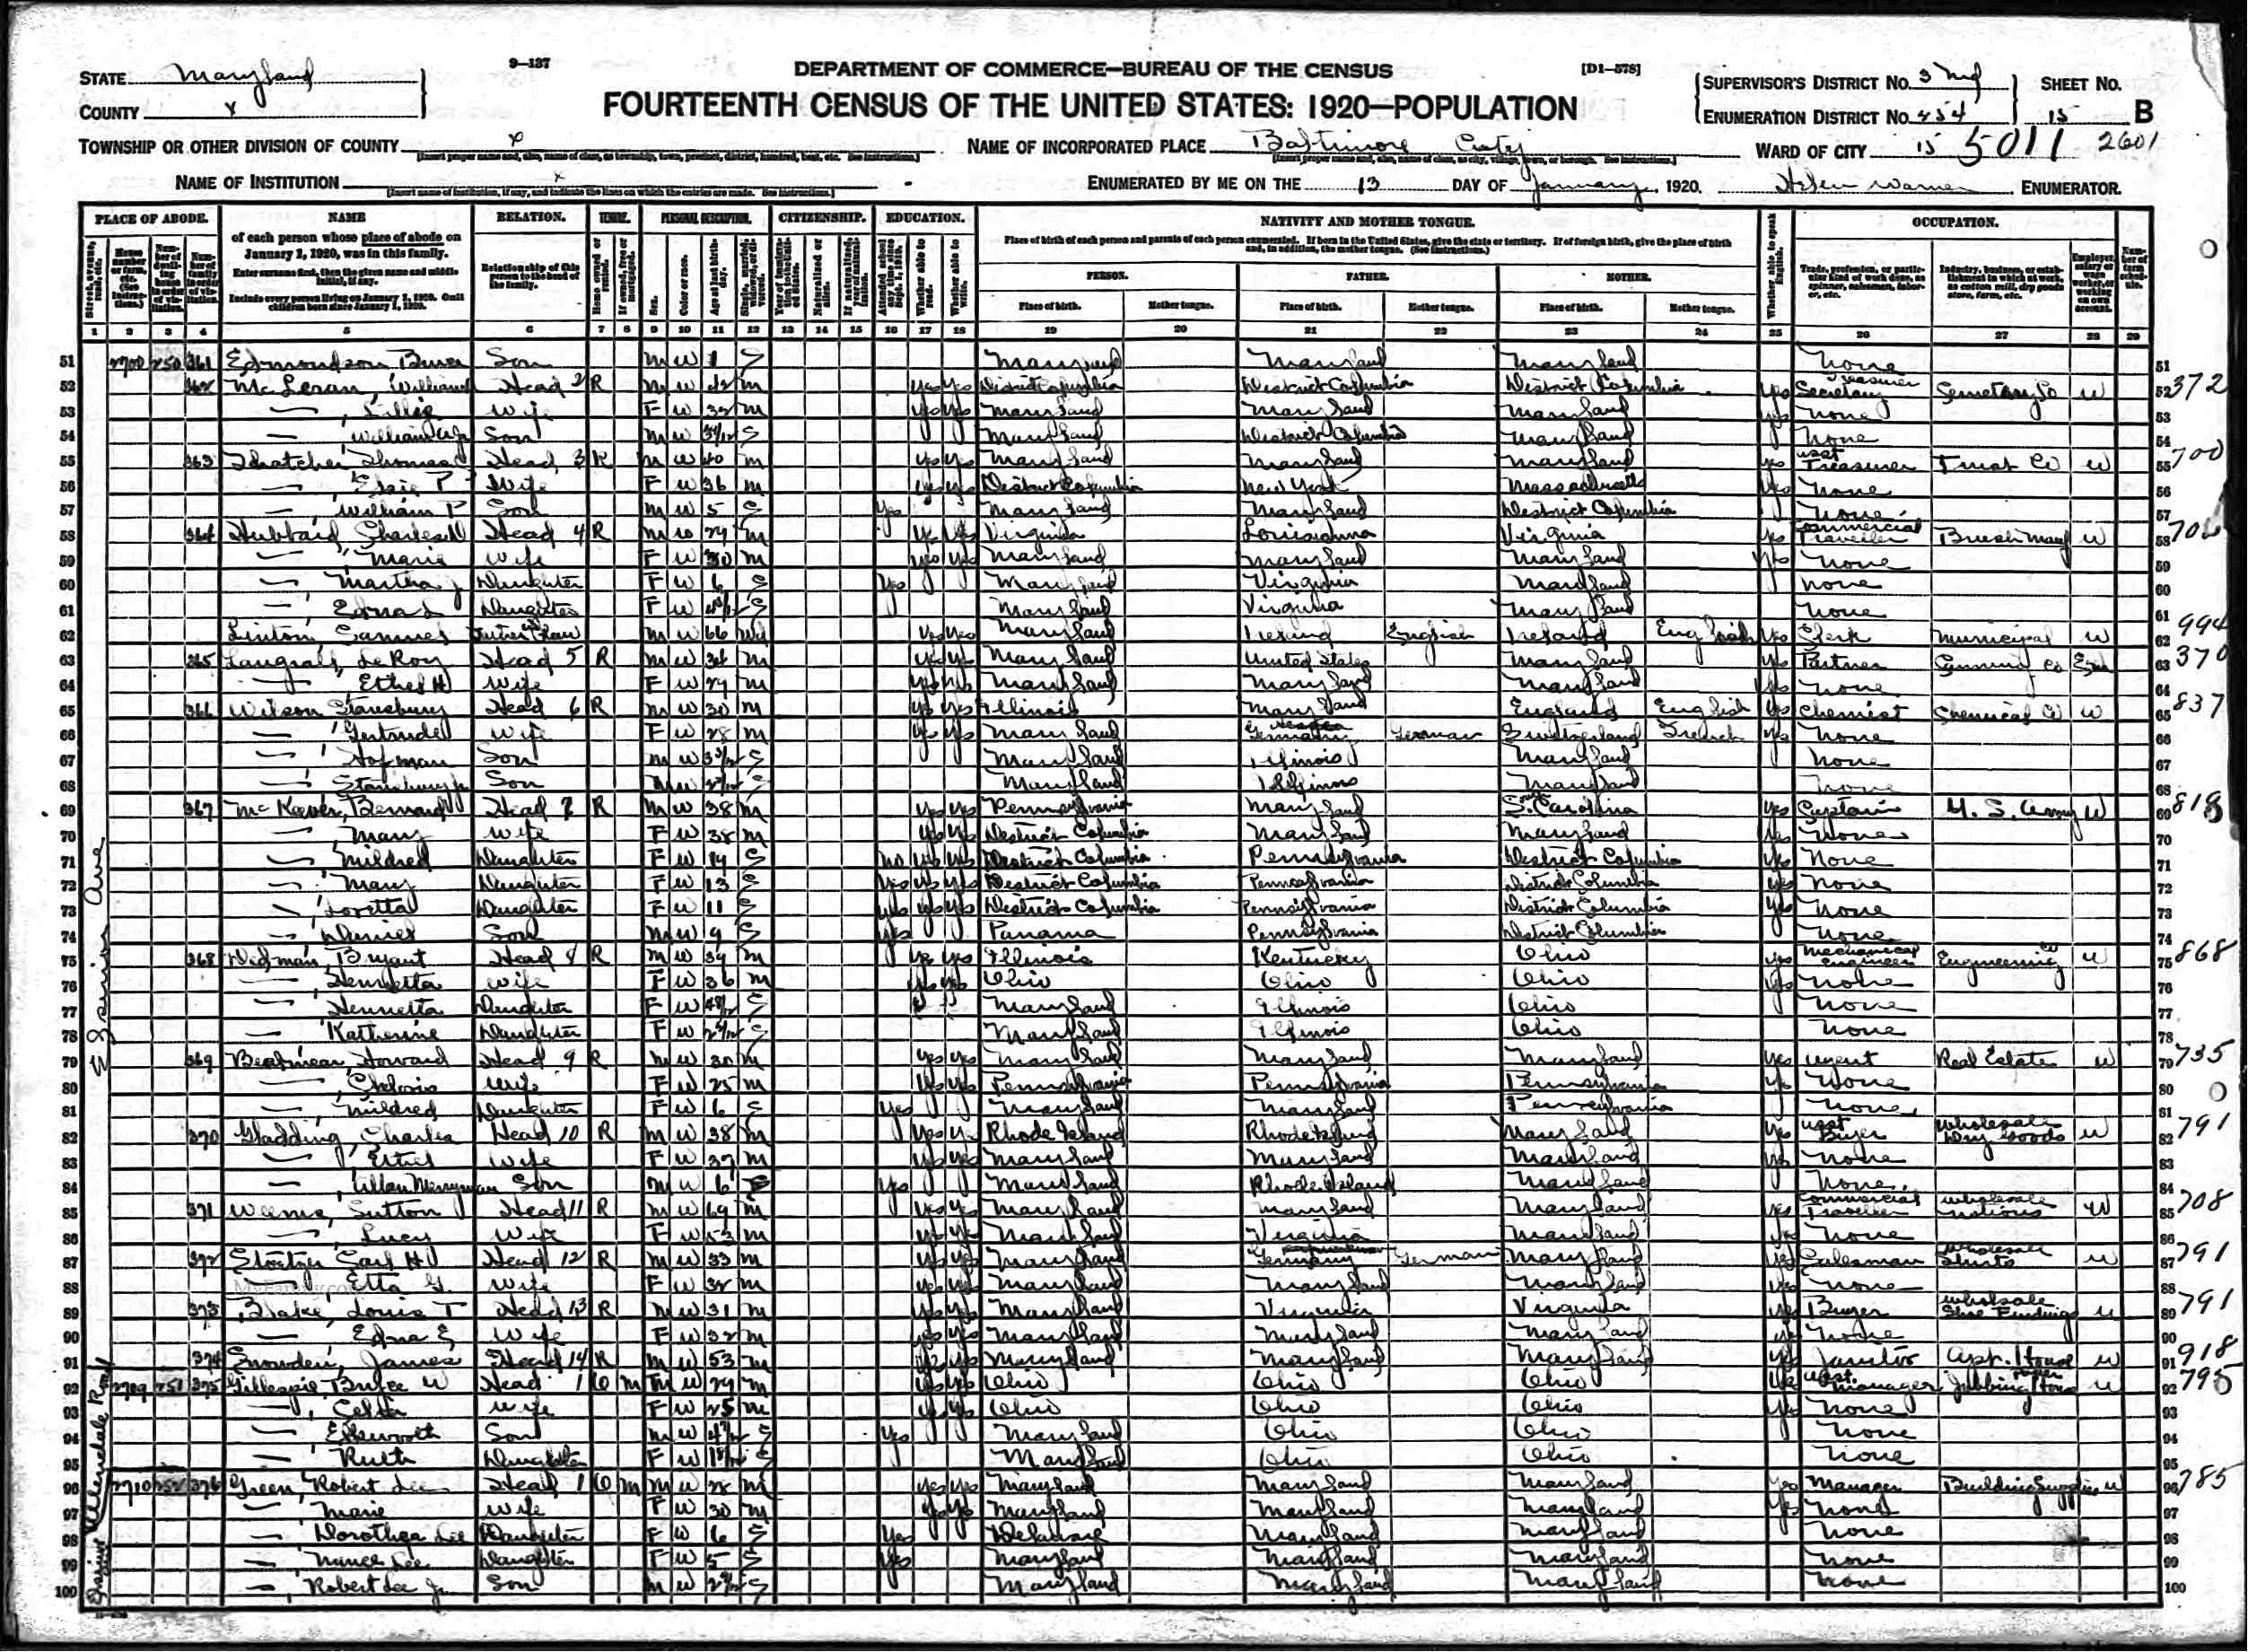 9—137
DEPARTMENT OF COMMERCE—BUREAU OF THE CENSUS
[D1—578]
STATE Maryland
COUNTY x
FOURTEENTH CENSUS OF THE UNITED STATES: 1920—POPULATION
SUPERVISOR'S DISTRICT No. 3 Md
SHEET No.
ENUMERATION DISTRICT No. 254
15 B
TOWNSHIP OR OTHER DIVISION OF COUNTY x
NAME OF INCORPORATED PLACE Baltimore City
WARD OF CITY 15 5011 2601
NAME OF INSTITUTION x
ENUMERATED BY ME ON THE 13 DAY OF January, 1920. Helen Warner ENUMERATOR.
PLACE OF ABODE. NAME RELATION. TENURE. PERSONAL DESCRIPTION. CITIZENSHIP. EDUCATION. NATIVITY AND MOTHER TONGUE. OCCUPATION.
of each person whose place of abode on January 1, 1920, was in this family.
Enter surname first, then the given name and middle initial, if any.
Include every person living on January 1, 1920. Omit children born since January 1, 1920.
Relationship of this person to the head of the family.
Place of birth of each person and parents of each person enumerated. If born in the United States, give the state or territory. If of foreign birth, give the place of birth and, in addition, the mother tongue. (See instructions.)
PERSON. FATHER. MOTHER.
Place of birth. Mother tongue. Place of birth. Mother tongue. Place of birth. Mother tongue.
1 2 3 4 5 6 7 8 9 10 11 12 13 14 15 16 17 18 19 20 21 22 23 24 25 26 27 28 29
51 2700 250 361 Edmondson, Son M W 1 S Maryland Maryland Maryland none 51
52 362 Head 2 R M W 42 M yes yes District Columbia District Columbia District Columbia yes Treasurer Secretary W 52 372
53 — Lillie wife F W M yes yes Maryland Maryland Maryland yes none 53
54 — William Jr Son M W S Maryland District Columbia Maryland none 54
55 363 Thatcher Thomas Head 3 R M W 40 M yes yes Maryland Maryland Maryland yes asst Treasurer Trust Co W 55 700
56 — Elsie P wife F W 36 M yes yes District Columbia New York Massachusetts yes none 56
57 — William P Son M W 5 S yes Maryland Maryland District Columbia none 57
58 364 Hubbard Charles Head 4 R M W 29 M yes yes Virginia Louisianna Virginia yes Commercial Traveller Brush Manf W 58 706
59 — Marie wife F W 30 M yes yes Maryland Maryland Maryland yes none 59
60 — Martha J Daughter F W 6 S yes Maryland Virginia Maryland none 60
61 — Edna L Daughter F W S Maryland Virginia Maryland none 61
62 Linton, Samuel Father in Law M W 66 Wd yes yes Maryland Ireland English Ireland English yes Clerk Municipal W 62 994
63 365 Langrall, LeRoy Head 5 R M W 34 M yes yes Maryland United States Maryland yes Partner Canning Co Em 63 370
64 — Ethel H wife F W 29 M yes yes Maryland Maryland Maryland yes none 64
65 366 Wilson Stansbury Head 6 R M W 30 M yes yes Illinois Maryland England English yes Chemist Chemical Co W 65 837
66 — Gertrude wife F W 28 M yes yes Maryland Germany German Switzerland French yes none 66
67 — Hofman Son M W S Maryland Illinois Maryland none 67
68 — Stansbury Jr Son M W S Maryland Illinois Maryland none 68
69 367 McKeever, Bernard Head 7 R M W 38 M yes yes Pennsylvania Maryland S. Carolina yes Captain U. S. Army W 69 818
70 — Mary wife F W 38 M yes yes District Columbia Maryland Maryland yes none 70
71 — Mildred Daughter F W 14 S no yes yes District Columbia Pennsylvania District Columbia yes none 71
72 — Mary Daughter F W 13 S yes yes yes District Columbia Pennsylvania District Columbia yes none 72
73 — Loretta Daughter F W 11 S yes yes yes District Columbia Pennsylvania District Columbia yes none 73
74 — Daniel Son M W 9 S yes Panama Pennsylvania District Columbia none 74
75 368 Dedman Bryant Head 8 R M W 39 M yes yes Illinois Kentucky Ohio yes Mechanical Engineer Engineering Co W 75 868
76 — Henrietta wife F W 36 M yes yes Ohio Ohio Ohio yes none 76
77 — Henrietta Daughter F W S Maryland Illinois Ohio none 77
78 — Katherine Daughter F W S Maryland Illinois Ohio none 78
79 369 Howard Head 9 R M W 30 M yes yes Maryland Maryland Maryland yes agent Real Estate W 79 735
80 — wife F W 25 M yes yes Pennsylvania Pennsylvania Pennsylvania yes none 80
81 — Mildred Daughter F W 6 S yes Maryland Maryland Pennsylvania none 81
82 370 Gladding, Charles Head 10 R M W 38 M yes yes Rhode Island Rhode Island Maryland yes asst Buyer wholesale Dry Goods W 82 791
83 — Ethel wife F W 37 M yes yes Maryland Maryland Maryland yes none 83
84 — Allan Merryman Son M W 6 S yes Maryland Rhode Island Maryland none 84
85 371 Weems, Sutton Head 11 R M W 69 M yes yes Maryland Maryland Maryland yes Commercial Traveller wholesale notions W 85 708
86 — Lucy wife F W 53 M yes yes Maryland Virginia Maryland yes none 86
87 372 Earl H Head 12 R M W 33 M yes yes Maryland Germany German Maryland yes Salesman wholesale Shirts W 87 791
88 — Etta G. wife F W 32 M yes yes Maryland Maryland Maryland yes none 88
89 373 Blake, Louis T Head 13 R M W 31 M yes yes Maryland Virginia Virginia yes Buyer wholesale Shoe Findings W 89 791
90 — Edna E wife F W 32 M yes yes Maryland Maryland Maryland yes none 90
91 374 Snowden, James Head 14 R M W 53 M yes yes Maryland Maryland Maryland yes Janitor Apt. House W 91 918
92 2709 251 375 Gillespie Bruce W Head 1 O M M W 29 M yes yes Ohio Ohio Ohio yes asst. manager Paper Jobbing House W 92 795
93 — Celia wife F W 25 M yes yes Ohio Ohio Ohio yes none 93
94 — Ellsworth Son M W S yes Maryland Ohio Ohio none 94
95 — Ruth Daughter F W S Maryland Ohio Ohio none 95
96 2710 252 376 Green, Robert Lee Head 1 O M M W 28 M yes yes Maryland Maryland Maryland yes Manager Building Supplies W 96 785
97 — Marie wife F W 30 M yes yes Maryland Maryland Maryland yes none 97
98 — Dorothea Lee Daughter F W 6 S yes Delaware Maryland Maryland none 98
99 — Lee Daughter F W 5 S yes Maryland Maryland Maryland none 99
100 — Robert Lee Jr Son M W S Maryland Maryland Maryland none 100